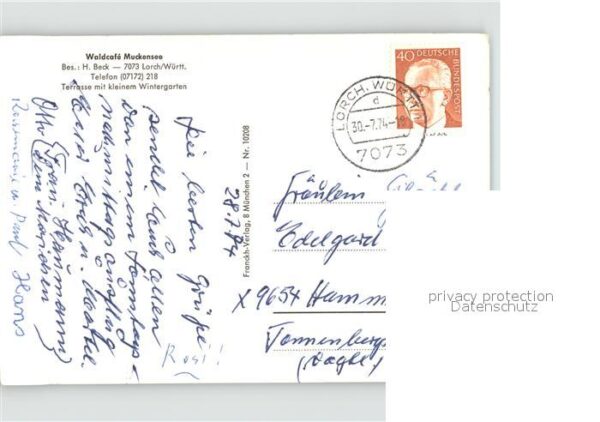 Waldcafé Muckensee
Bes.: H. Beck — 7073 Lorch/Württ.
Telefon (07172) 218
Terrasse mit kleinem Wintergarten
40 DEUTSCHE BUNDESPOST
LORCH, WÜRTT
d
30.-7.74-18
7073
Franckh-Verlag, 8 München 2 — Nr. 10208
28.7.74
Grüße
sendet Euch allen
von einem Sonntags-
nachmittagsausflug
Eure
Otto
Rosemarie u. Paul Hans
Rosi!
Fräulein
Edelgard
X 9654 Hamm
Tannenberg
privacy protection
Datenschutz